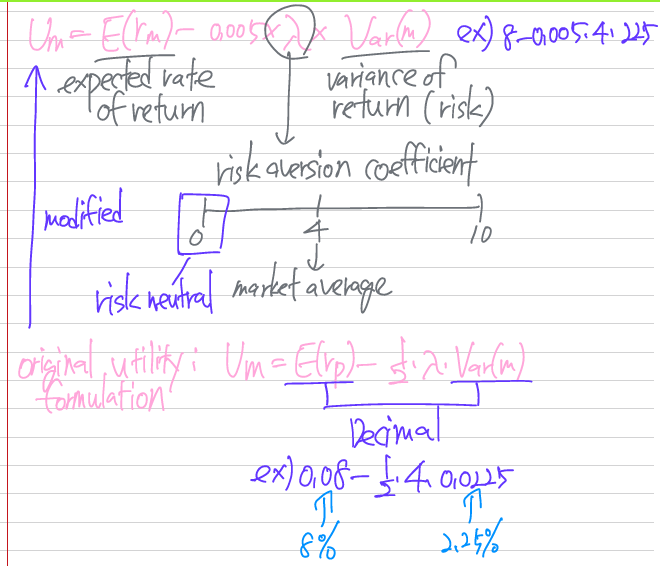 Um = E(rm) - 0.005 × λ × Var(m) ex) 8-0.005·4·225
expected rate of return
variance of return (risk)
risk aversion coefficient
modified
0 4 10
risk neutral
market average
original utility formulation: Um = E(rp) - 1/2·λ·Var(m)
Decimal
ex) 0.08 - 1/2·4·0.0225
8% 2.25%